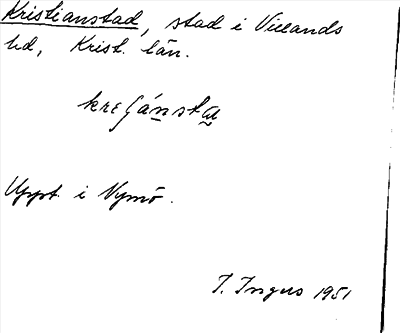 Kristianstad, stad i Villands
hd, Krist. län.
Uppt. i Nymö.
T. Ingers 1951